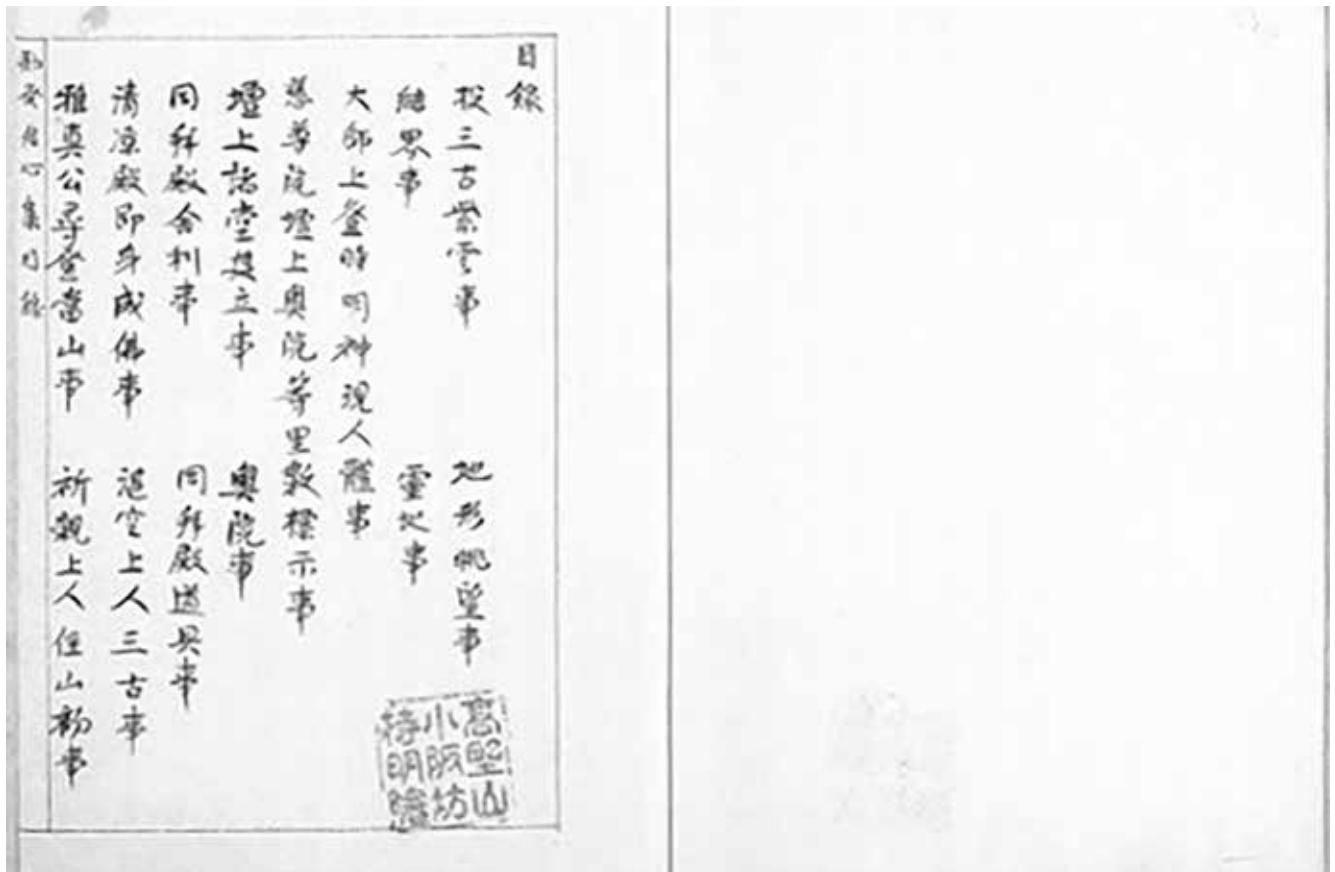 目録
投三古紫雲事　地形眺望事
結界事　霊地事
大師上登時明神現人體事
慈尊院壇上奥院等里數標示事
壇上諸堂建立事　奥院事
同拜殿舍利事　同拜殿道具事
清凉殿即身成佛事　延空上人三古事
雅真公尋登當山事　祈親上人住山初事
發心集目録
高野山
小阪坊
持明院